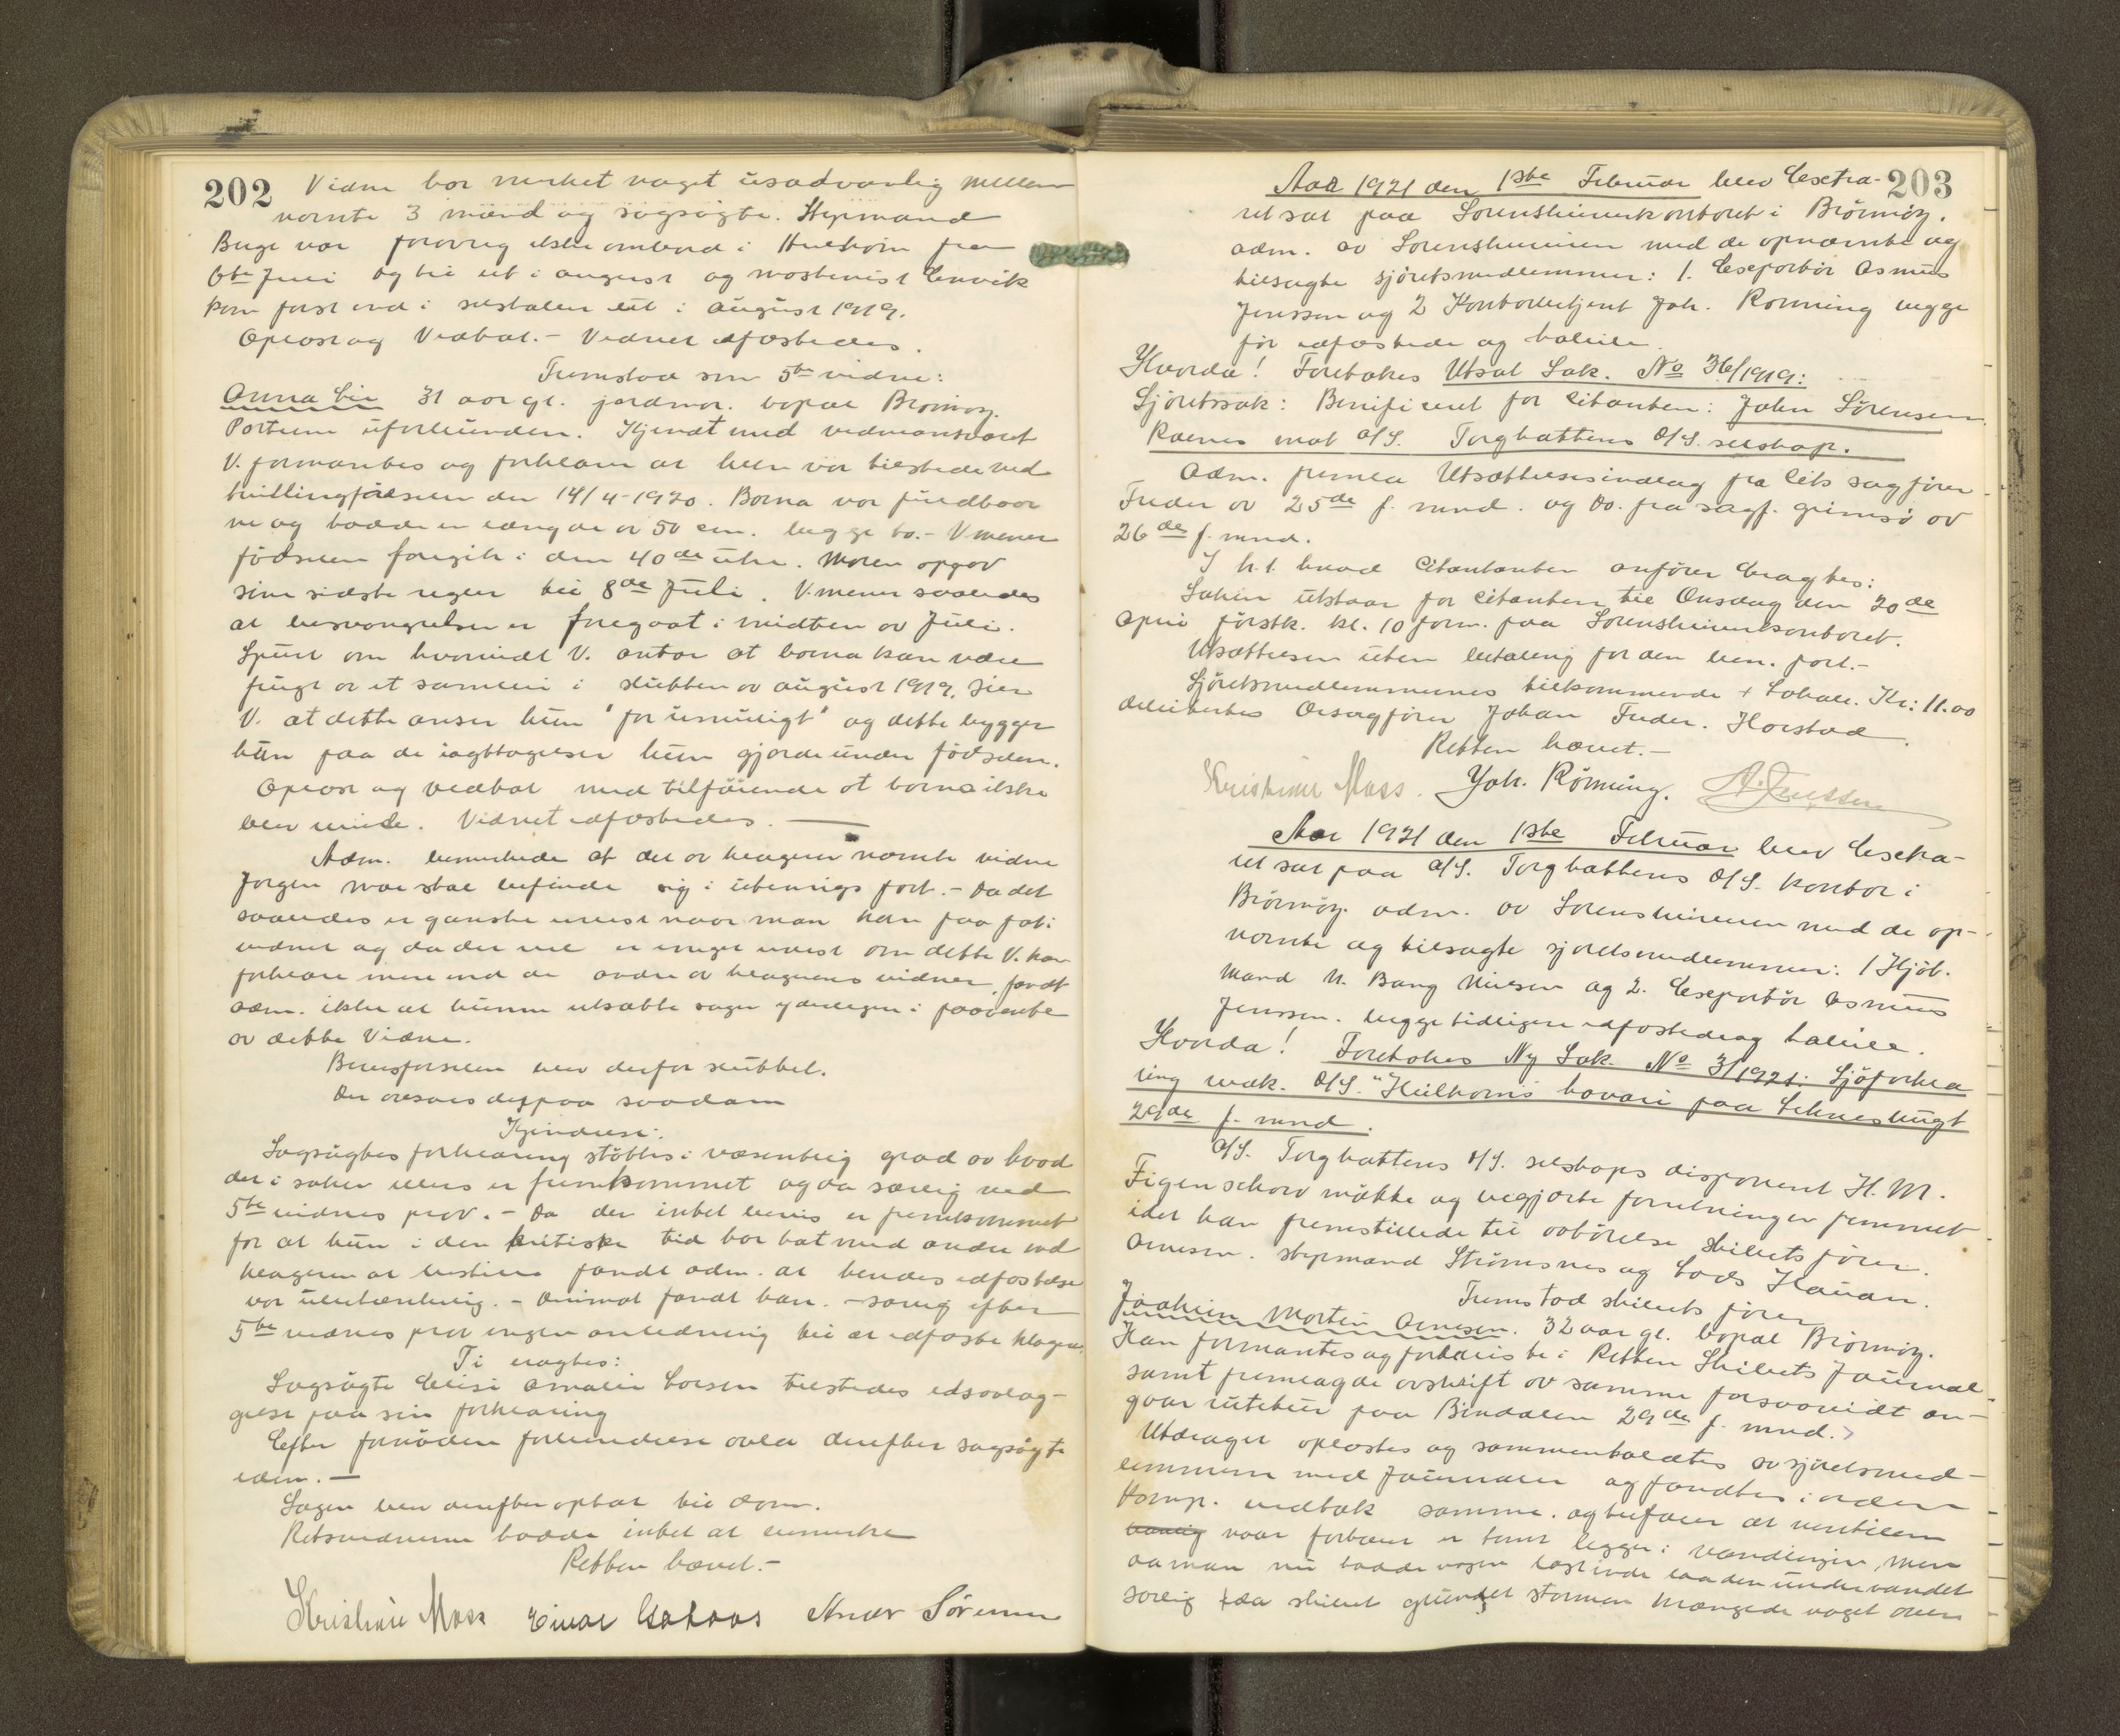 202
Vidne har merket noget usædvanlig mellem
nævnte 3 mænd og sagsøgte. Styrmand
Buge var forøvrig ikke ombord i Heilhorn fra
6te Juni og til ut i august og maskinist Lenvik
kom først ind i selskalen ut i august 1919.
Oplæst og Vedtat. - Vidnet edfæstedes.
Fremstod som 5te vidne:
Anna Lie 31 aar gl. jordmor. bopæl Brønnøy.
Partene uforbunden. Kjendt med vidneansvaret
V. formantes og forklarer at hun var tilstede ved
tvillingfødselen den 14/4-1920. Borna var fuldbaar
ne og hadde en længde av 50 cm. begge to. - V. mener
fødselen foregik i den 40de uke. Moren opgav
sine sidste regler til 8de Juli. V. mener saaledes
at besvangrelsen er foregaat i midten av Juli.
Spurt om hvorvidt V. antar at borna kan være
frugt av et samleie i slutten av august 1919, sier
V. at dette anser hun "for umuligt" og dette bygger
hun paa de iagttagelser hun gjorde under fødselen.
Oplæst og vedtat med tilføiende at borna ikke
blev veiede. Vidnet edfæstedes. —
Adm. bemerkede at det av klageren nævnte vidne
Jørgen Moe skal befinde sig i utenrigs fart. - Da det
saaledes er ganske uvist naar man kan faa fat i
vidnet og da det vel er meget uvist om dette V. kan
forklare mere end de andre av klagerens vidner, fandt
adm. ikke at kunne utsætte sagen yderligere i paavente
av dette Vidne.
Bevisførselen blev derfor sluttet.
Der avsaaes derpaa saadan
Kjendelse:
Sagsøgtes forklaring støttes i væsentlig grad av hvad
der i saken ellers er fremkommet og da særlig ved
5te vidnes prov. - Da der intet bevis er fremkommet
for at hun i den kritiske tid har hat med andre end
klageren at bestille fandt adm. at hendes edfæstelse
var ubetænkelig. - Derimot fandt han - særlig efter
5te vidnes prov ingen anledning til at edfæste klageren.
Ti eragtes:
Sagsøgte Elise Amalie Larsen tilstedes edsavlæg-
gelse paa sin forklaring
Efter fornøden forberedelse avla derefter sagsøgte
eden. —
Sagen blev derefter optat til dom.
Retsvidnerne hadde intet at bemerke
Retten hævet. -
Kristine Moss Einar Andr Sørensen
203
Aar 1921 den 1ste Februar blev Extra-
ret sat paa Sorenskriverkontoret i Brønnøy.
adm. av Sorenskriveren med de opnævnte og
tilsagte sjøretsmedlemmer: 1. Exportør Asmus
Jenssen og 2 Kontorbetjent Joh. Rønning begge
før edfæstede og habile.
Hvorda! Foretokes Utsat Sak. No 36/1919:
Sjøretssak: Benificert for Citanten: John Sørensen
Kaenes mot A/S. Torghattens D/S. selskap.
Adm. fremla Utsættelsesindlæg fra Cits sagfører
Fuder av 25de f. mnd. og do. fra sagf. Grimsø av
26de f. mnd.
I h.t. hvad Citantanten anfører eragtes:
Saken utstaar for Citanten til Onsdag den 20de
April førstk. kl. 10 form. paa Sorenskriverkontoret.
Utsættelsen uten betaling for den ben. part. -
Sjøretsmedlemmernes tilkommende + Lokale. Kr: 11.00
debiteres Orsagfører Johan Fuder. Harstad.
Retten hævet. -
Kristine Moss. Joh. Rønning. A. Jenssen
Aar 1921 den 1ste Februar blev Extra-
ret sat paa A/S. Torghattens D/S. kontor i
Brønnøy. adm. av Sorenskriveren med de op-
nævnte og tilsagte sjøretsmedlemmer: 1 Kjøb-
mand N. Bang Nielsen og 2. Exportør Asmus
Jenssen. begge tidligere edfæstede og habile.
Hvorda! Foretokes Ny Sak. No 3/1921: Sjøforkla
ring vedk. D/S. "Heilhorn's havari paa Leknesbugt
29de f. mnd.
A/S. Torghattens D/S. selskaps disponent H. M.
Figenschow møtte og begjærte forretningen fremmet
idet han fremstillede til avhørelse skibets fører
Arnesen. styrmand Strømsnes og Lods Hauan.
Fremstod skibets fører
Joakim Morten Arnesen. 32 aar gl. bopæl Brønnøy.
Han formantes og forklariste i Retten Skibets Journal
samt fremlagde avskrift av samme forsaavidt an-
gaar rutetur paa Bindalen 29de f. mnd.
Utdraget oplæstes og sammenholdtes av sjøretsmed-
lemmerne med Journalen og fandtes i orden
Komp. vedtok samme. og tilføier at ventilen
vanlig naar forbaren er tomt ligger i vandlinjen, men
da man nu hadde nogen last inde laa den under vandet
særlig da skibet grundet stormen krængede noget over